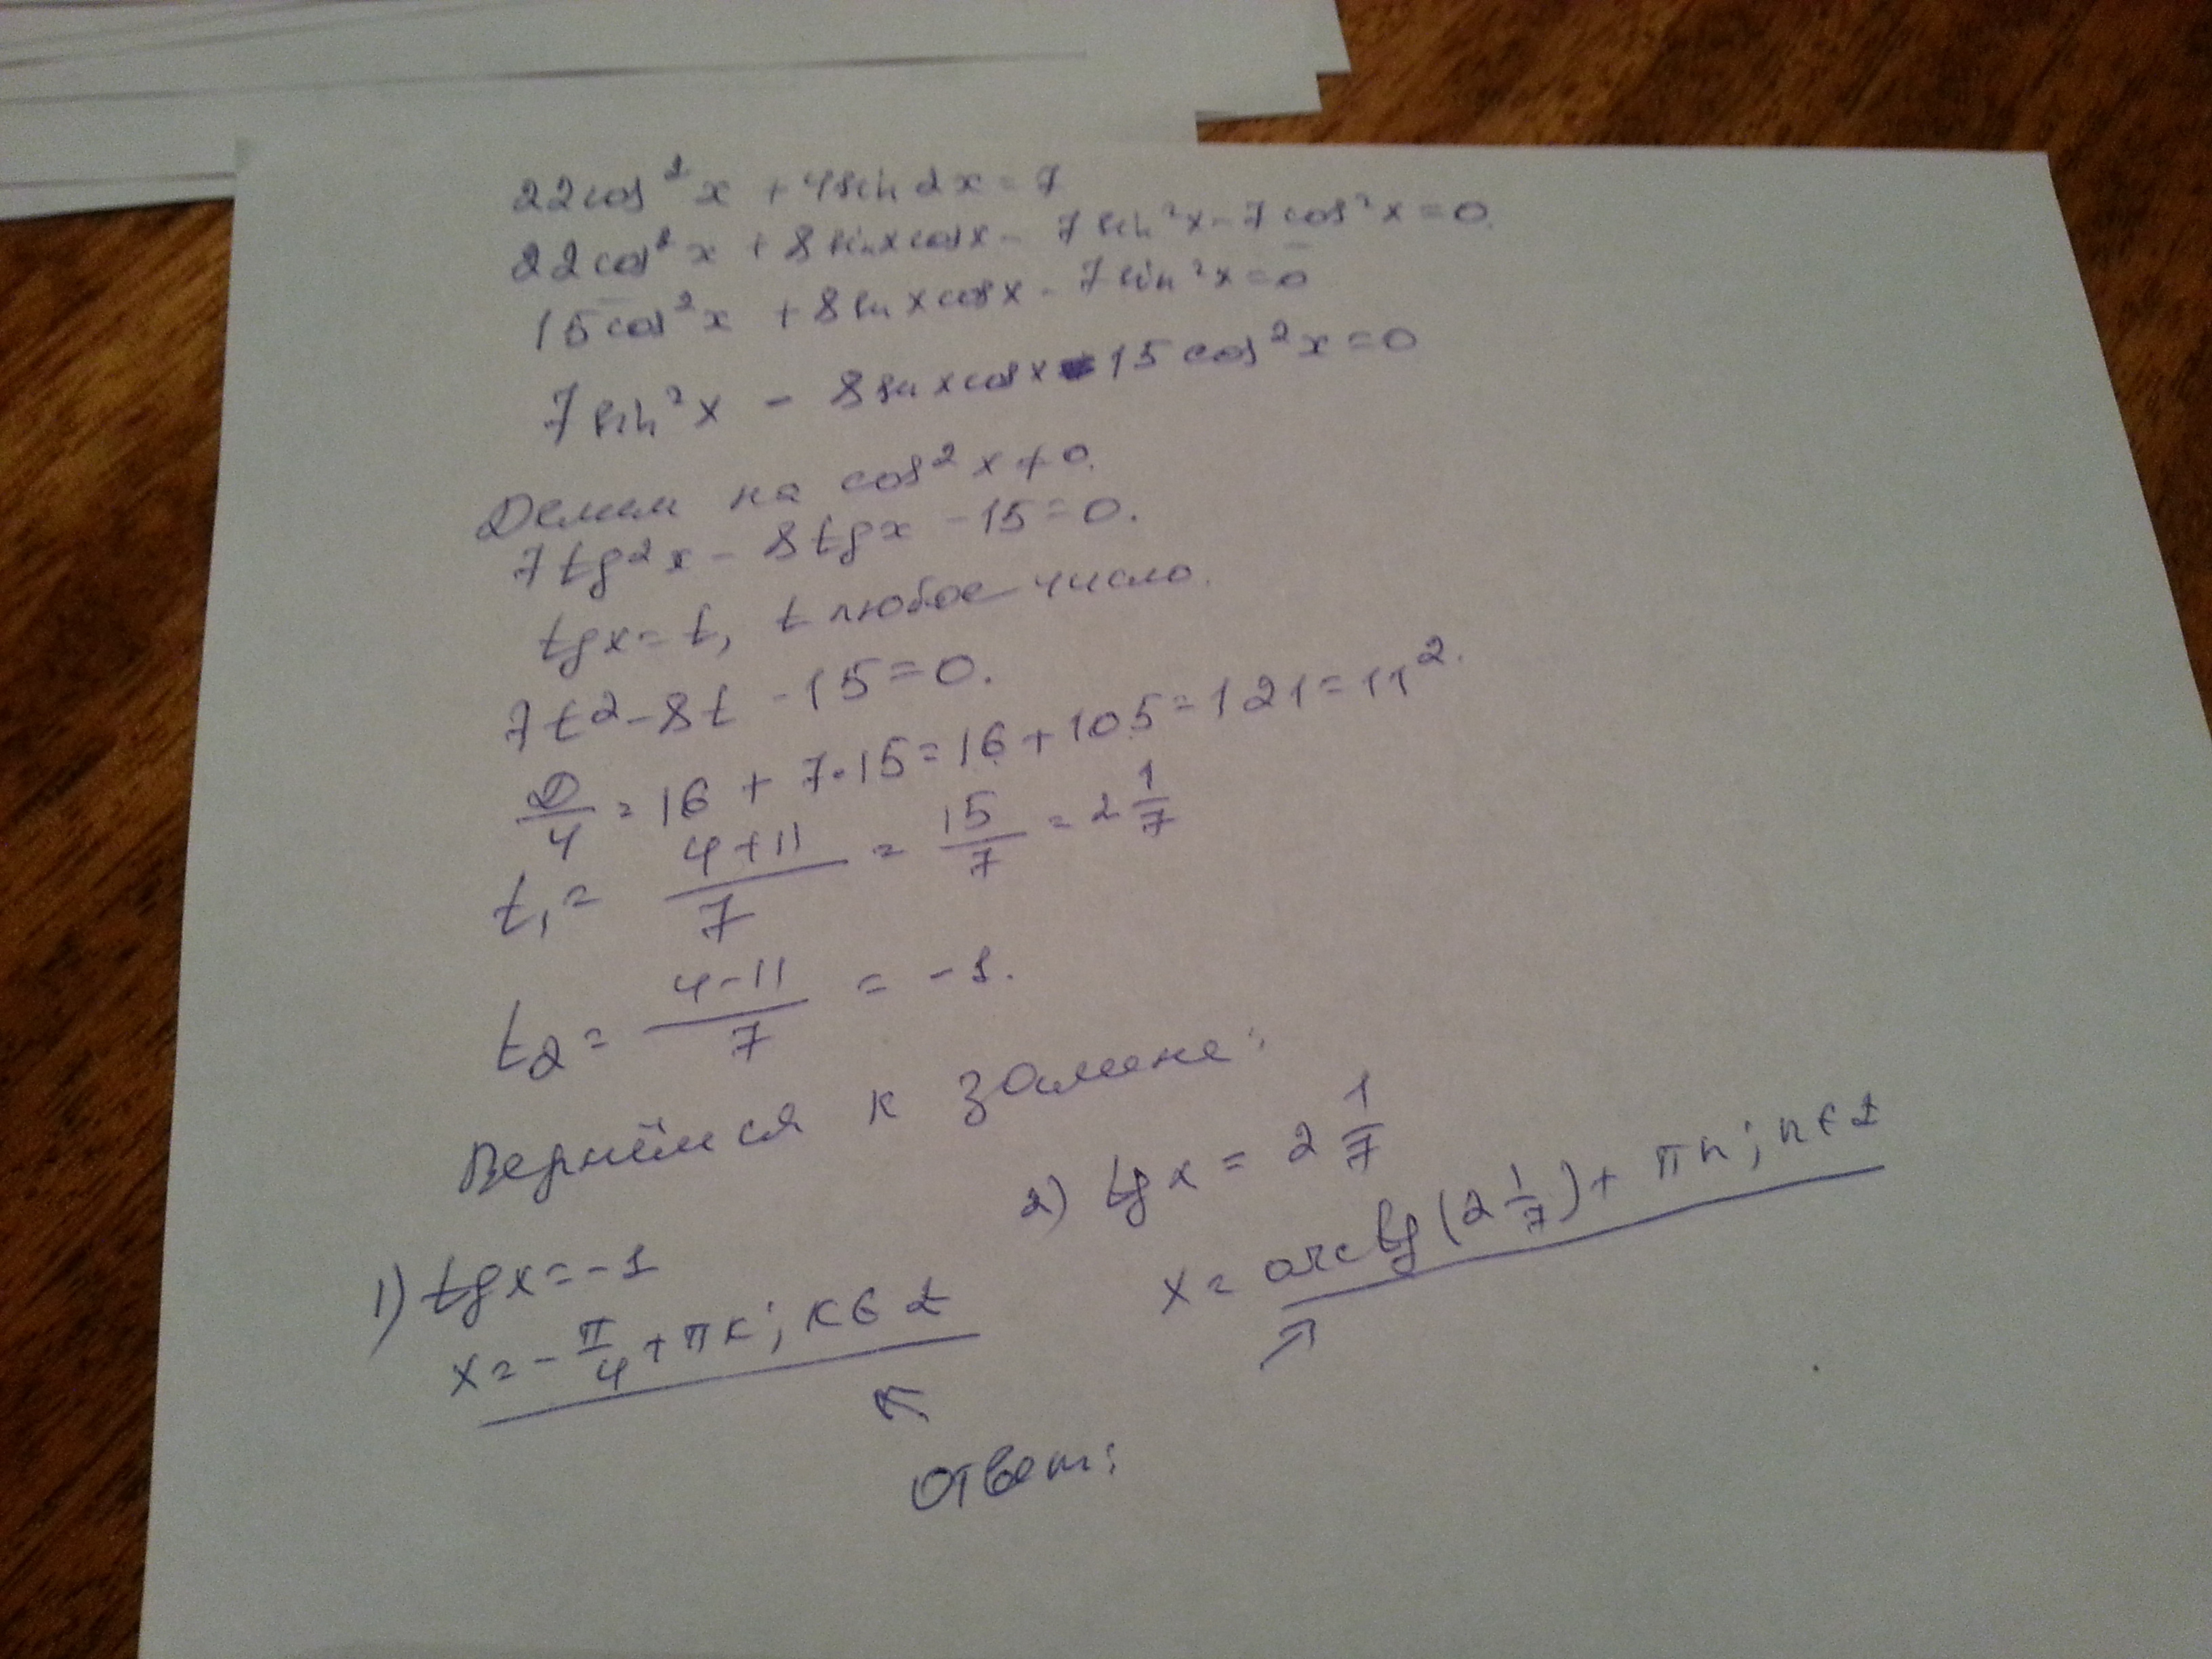 22cos²x + 4sin2x = 7
22cos²x + 8sinxcosx - 7sin²x - 7cos²x = 0.
15cos²x + 8sinxcosx - 7sin²x = 0
7sin²x - 8sinxcosx - 15cos²x = 0
Делим на cos²x ≠ 0.
7tg²x - 8tgx - 15 = 0.
tgx = t, t любое число.
7t² - 8t - 15 = 0.
D/4 = 16 + 7·15 = 16 + 105 = 121 = 11².
t₁ = (4+11)/7 = 15/7 = 2 1/7
t₂ = (4-11)/7 = -1.
Вернёмся к замене:
1) tgx = -1
x = -π/4 + πk; k∈Z
2) tgx = 2 1/7
x = arctg(2 1/7) + πn; n∈Z
Ответ: